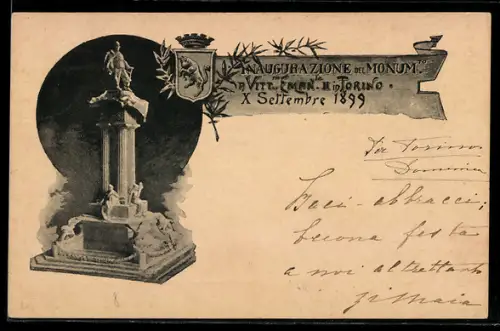 INAUGURAZIONE DEL MONUM.TO
A VITT. EMAN. II IN TORINO.
X SETTEMBRE 1899
Da Torino
Domenica
Baci - abbracci;
buona festa
a noi altrettanto